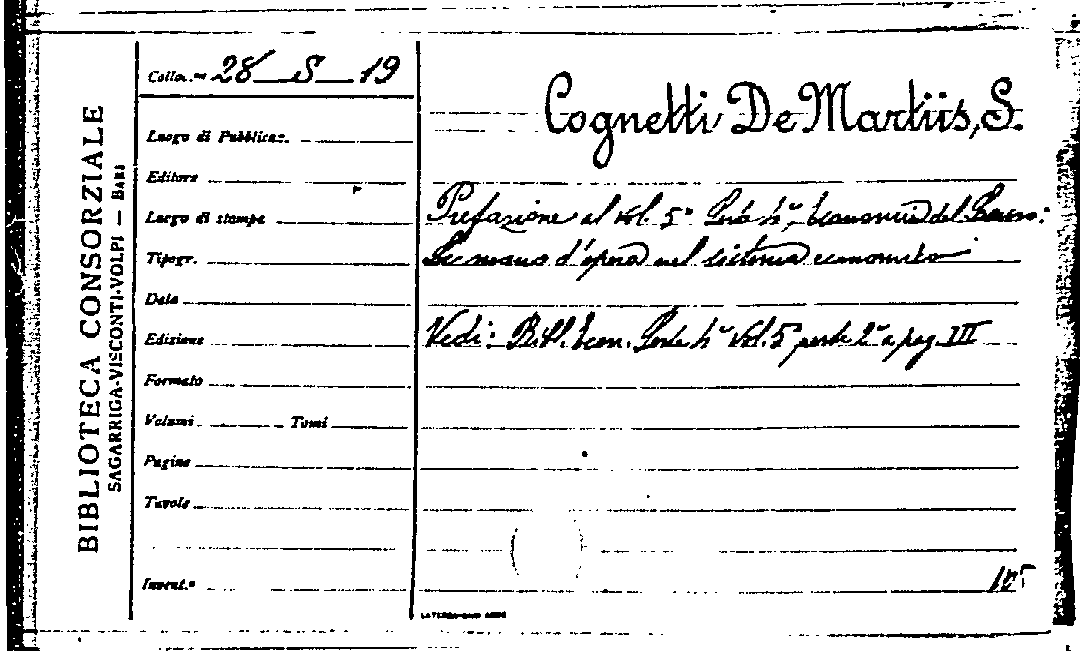 BIBLIOTECA CONSORZIALE
SAGARRIGA-VISCONTI-VOLPI — BARI
Colloc.ne 28 S 19
Luogo di Pubblicaz.
Editore
Luogo di stampa
Tipogr.
Data
Edizione
Formato
Volumi Tomi
Pagine
Tavole
Invent.º
Cognetti De Martiis, S.
Prefazione al vol. 5º Serie 4ª, Economia del Lavoro:
La mano d'opera nel sistema economico
Vedi: Bibl. Econ. Serie 4ª Vol. 5 parte 2ª a pag. III